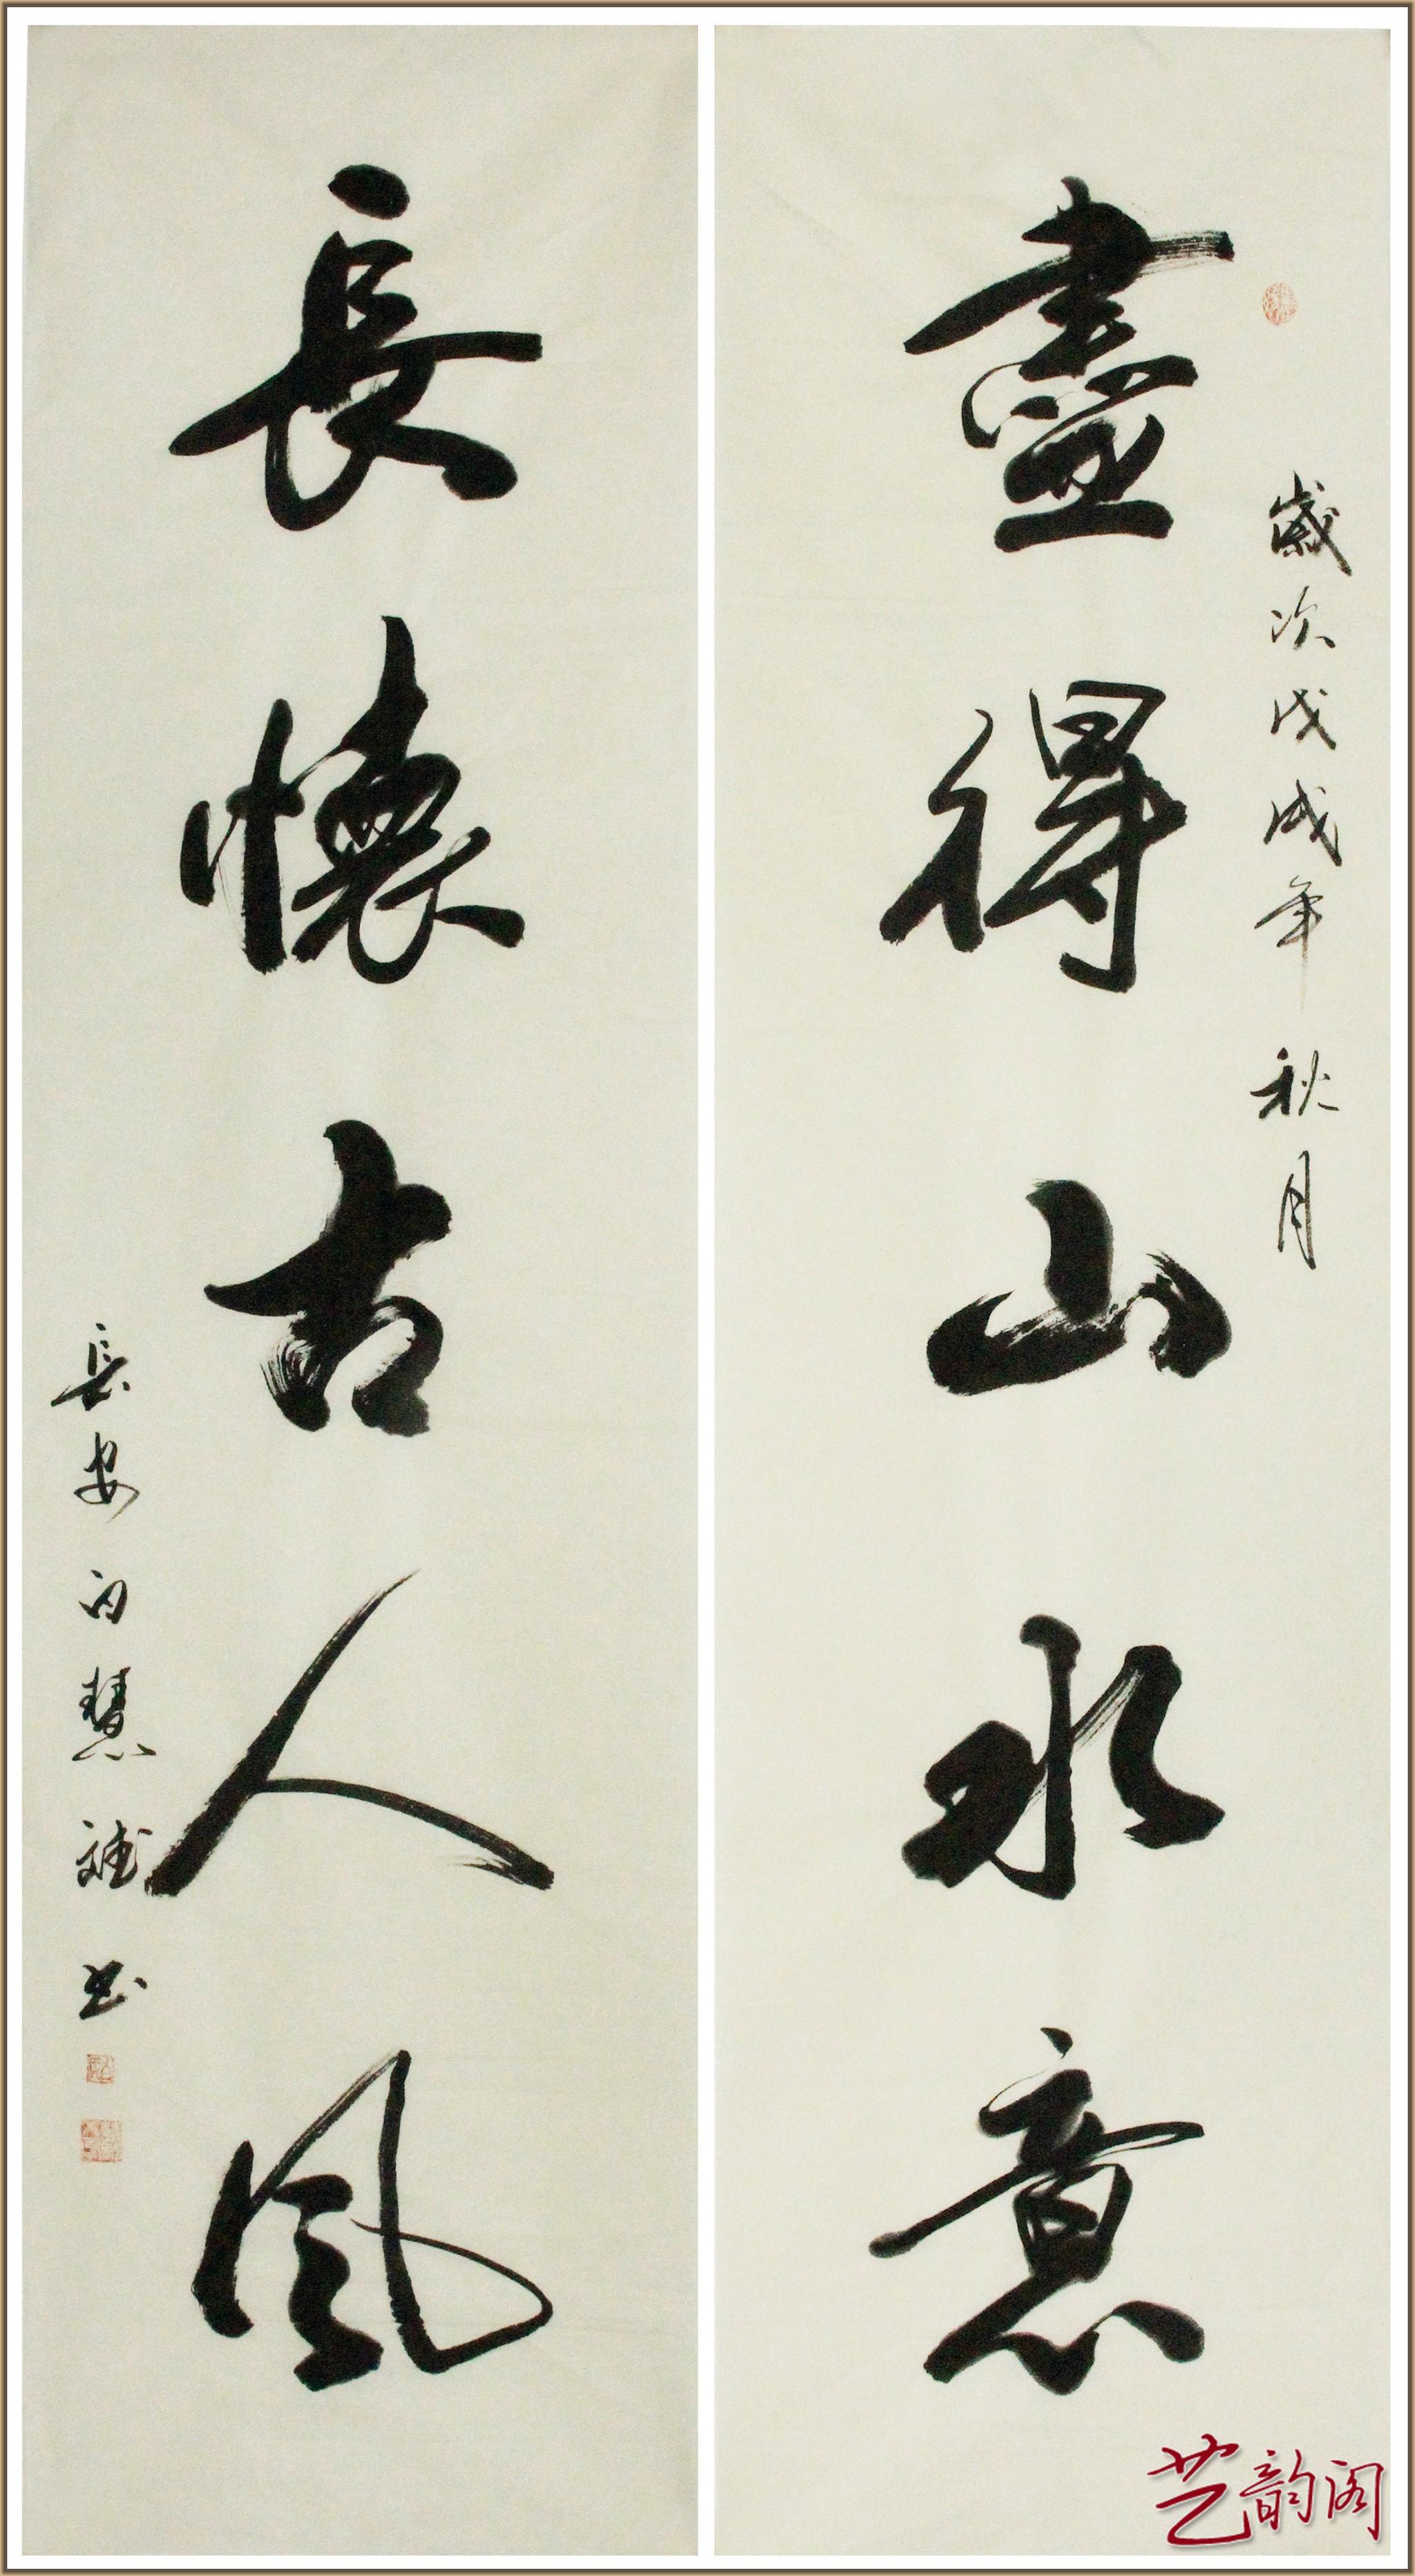 歲次戊戌年秋月
盡得山水意
長懷古人風
長安白慧斌書
艺韵阁